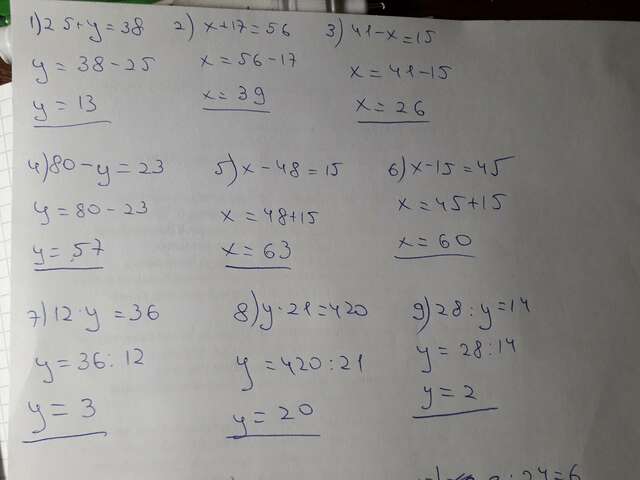 1) 25+y=38 2) x+17=56 3) 41-x=15
y=38-25 x=56-17 x=41-15
y=13 x=39 x=26
4) 80-y=23 5) x-48=15 6) x-15=45
y=80-23 x=48+15 x=45+15
y=57 x=63 x=60
7) 12·y=36 8) y·21=420 9) 28:y=14
y=36:12 y=420:21 y=28:14
y=3 y=20 y=2
:24=6